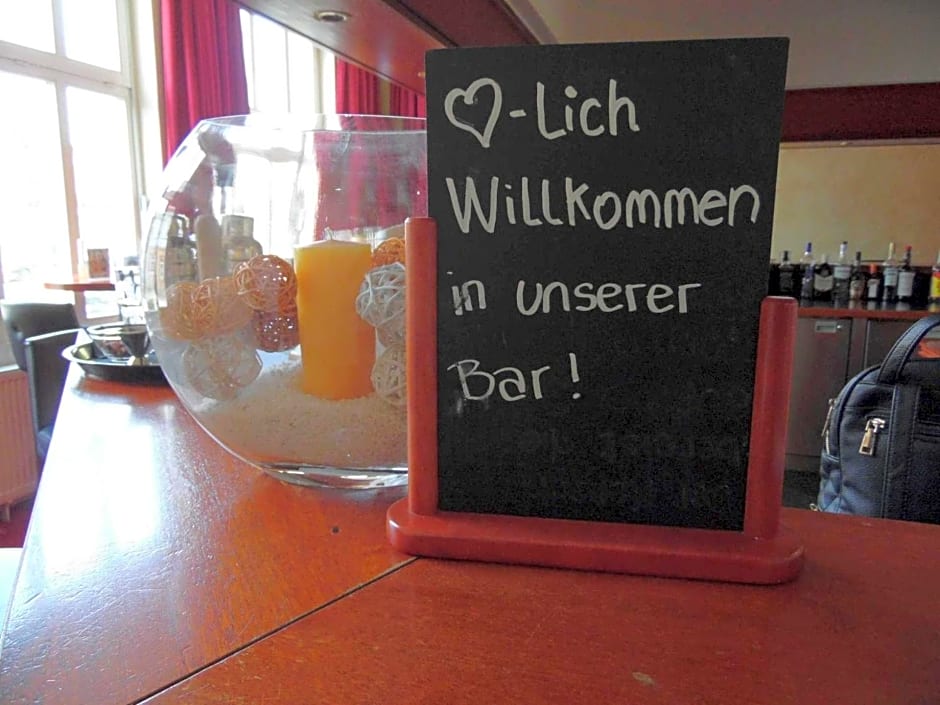 ♡-Lich
Willkommen
in unserer
Bar!